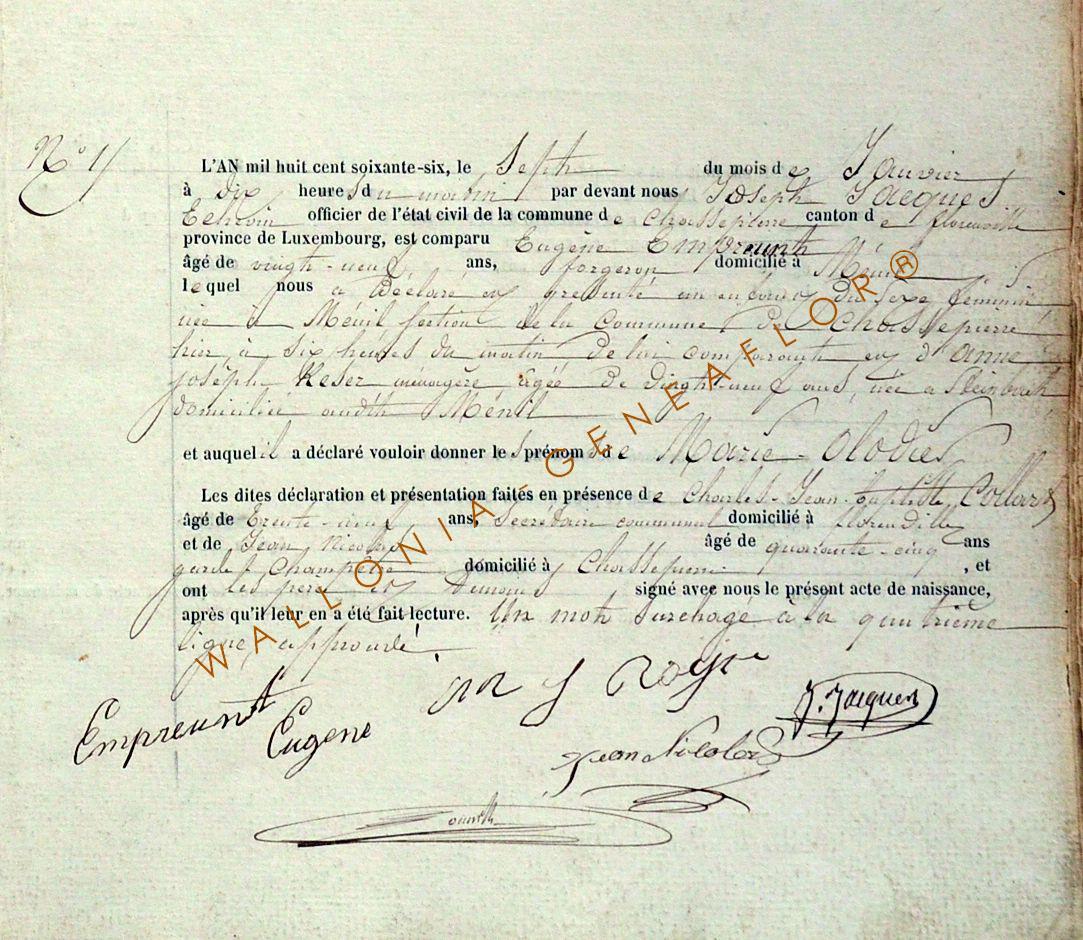 N° 1
L'AN mil huit cent soixante-six, le Sept du mois de Janvier
à dix heures du matin par devant nous Joseph Jacques
Echevin officier de l'état civil de la commune de Chassepierre canton de florenville
province de Luxembourg, est comparu Eugène Empreunt
âgé de vingt-neuf ans, forgeron domicilié à Ménil
lequel nous a déclaré et présenté un enfant du sexe féminin
née à Ménil section de la commune de Chassepierre
hier, à six heures du matin de lui comparant et d'anne
joseph Keser ménagère âgée de vingt-neuf ans, née à Steinbach
domiciliée audit Ménil
et auquel il a déclaré vouloir donner les prénoms de Marie-
Les dites déclaration et présentation faites en présence de Charles-Jean-baptiste Collard
âgé de trente-neuf ans, Secrétaire communal domicilié à florenville
et de Jean Nicolas âgé de quarante-cinq ans
garde Champêtre domicilié à Chassepierre, et
ont les père et témoins signé avec nous le présent acte de naissance,
après qu'il leur en a été fait lecture. Un mot surchagé à la quatrième
ligne, approuvé.
Empreunt Eugène
J. Jacques
Jean Nicolas
WALLONIA-GENEAFLOR®